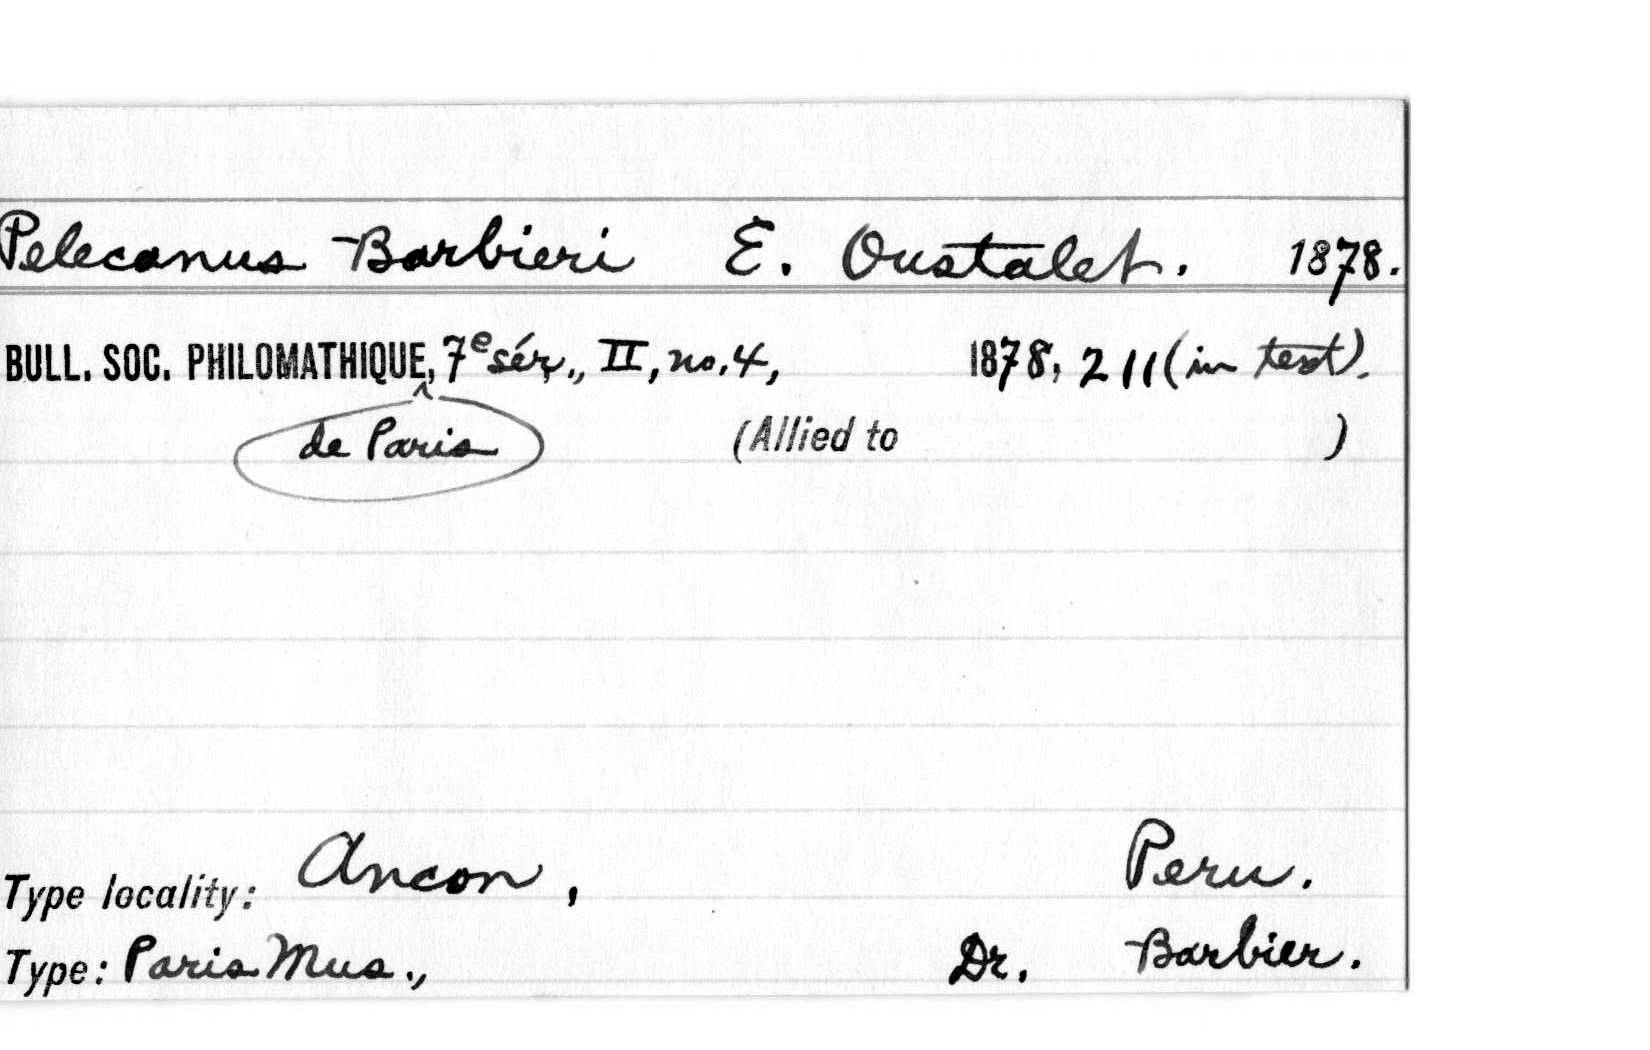 Pelecanus Barbieri E. Oustalet. 1878.
BULL. SOC. PHILOMATHIQUE, 7e sér., II, no. 4, 1878, 211 (in text).
^
de Paris (Allied to )
Type locality: Ancon, Peru.
Type: Paris Mus., Dr. Barbier.